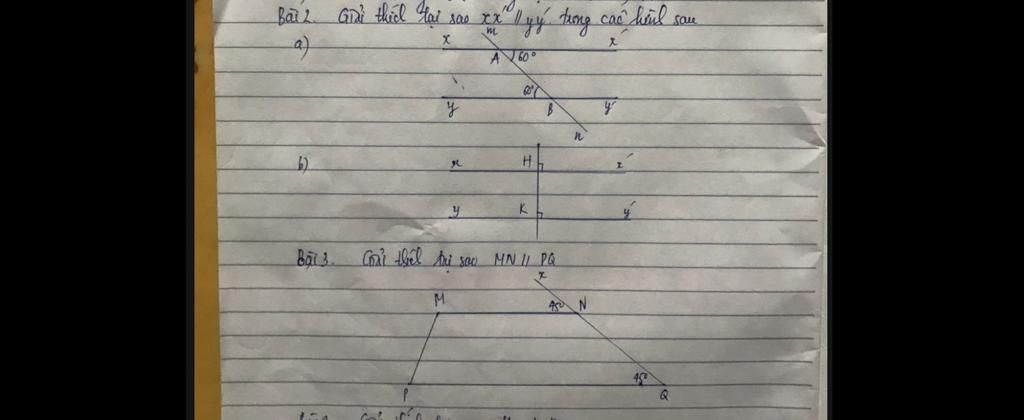 Bài 2. Giải thích tại sao xx' // yy' trong các hình sau
a)
m
x x'
A 60°
60°
y B y'
n
b)
x H x'
y K y'
Bài 3. Giải thích tại sao MN // PQ
x
M 45° N
45°
P Q